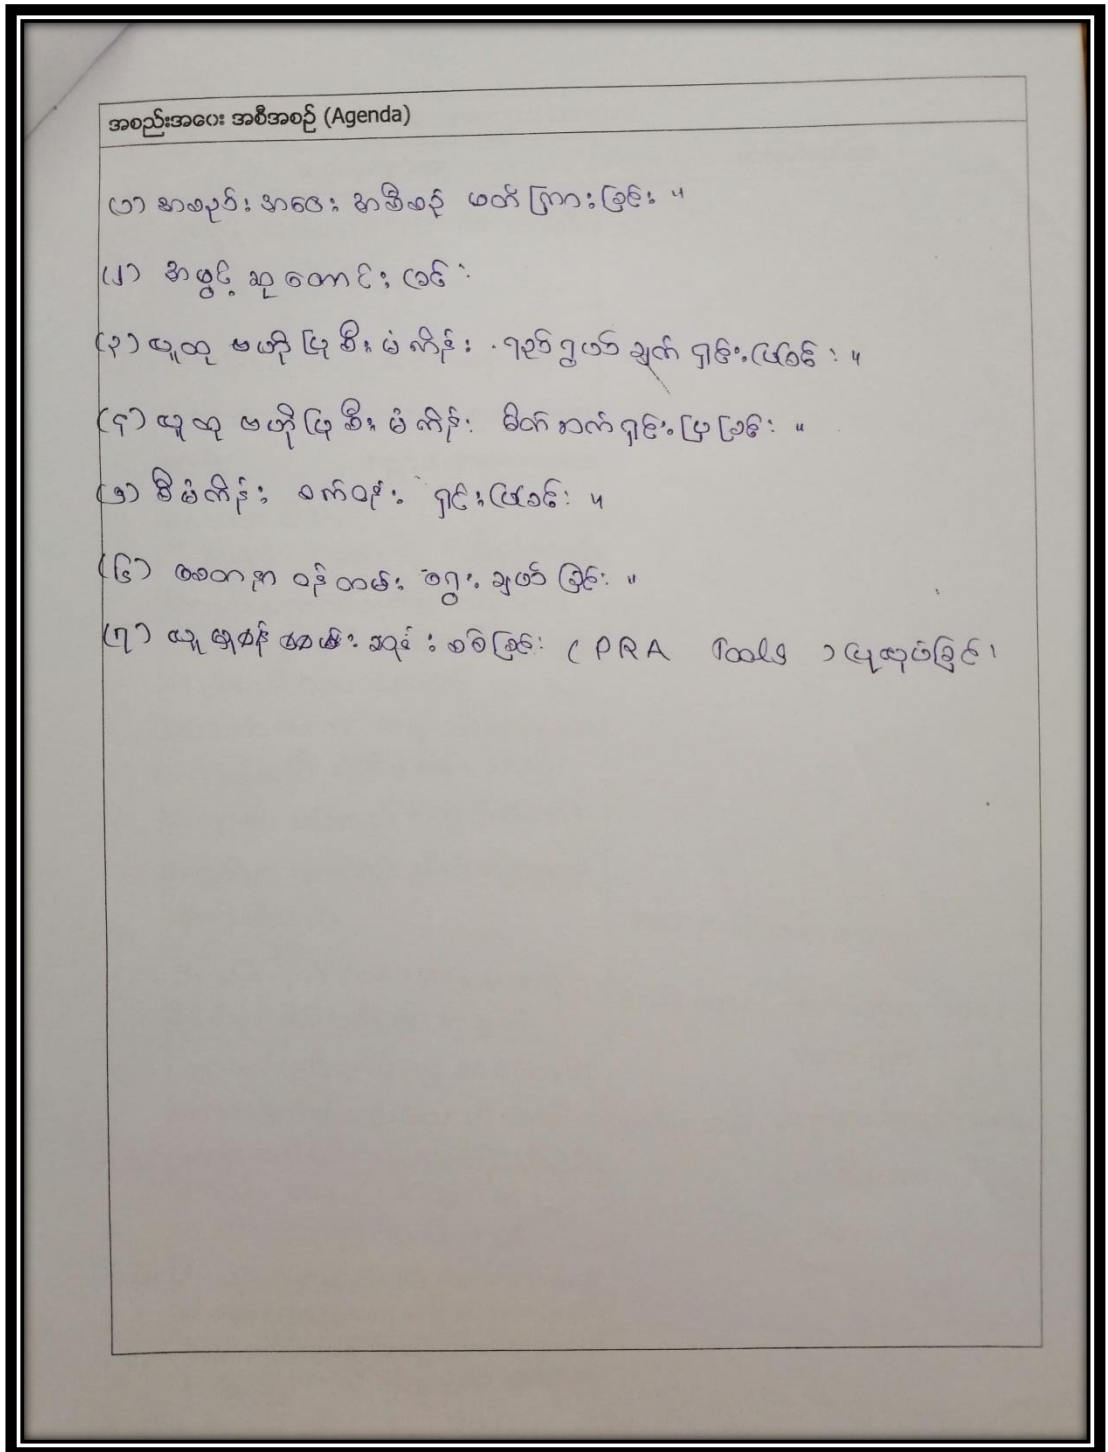 အစည်းအဝေး အစီအစဉ် (Agenda)
(၁) အစည်းအဝေး အစီစဉ် ဖတ်ကြားခြင်း။
(၂) အဖွင့် ဆုတောင်းခြင်း
(၃) လူထု ဗဟိုပြု စီးမံကိန်း ရည်ရွယ်ချက် ရှင်းပြခြင်း။
(၄) လူထု ဗဟိုပြု စီးမံကိန်း မိတ်ဆက် ရှင်းပြခြင်း။
(၅) စီမံကိန်း စက်ဝန်း ရှင်းပြခြင်း။
(၆) စေတနာ ဝန်ထမ်း ရွေးချယ်ခြင်း။
(၇) လူမှုစန်းစစ်ခြင်း (PRA Tools) ပြုလုပ်ခြင်း